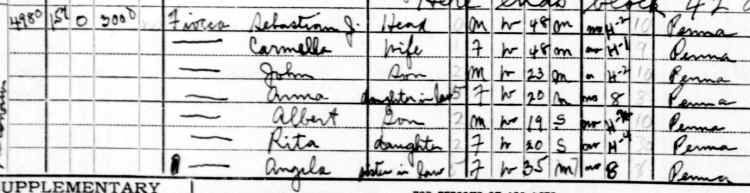 Here ends Block 42
4980 1st 0 3000 Fiocca Sebastian J. Head m w 48 m no H-2 10 Penna
— Carmella wife 7 w 48 m no H-1 9 Penna
— John Son m w 23 m no H-2 10 Penna
— Anna daughter in law 5 7 w 20 m no 8 8 Penna
— Albert Son 2 m w 19 S no Penna
— Rita daughter 2 7 w 20 S no H-4 Penna
— Angela sister in law 7 w 35 m 7 no 8 8 Penna
SUPPLEMENTARY